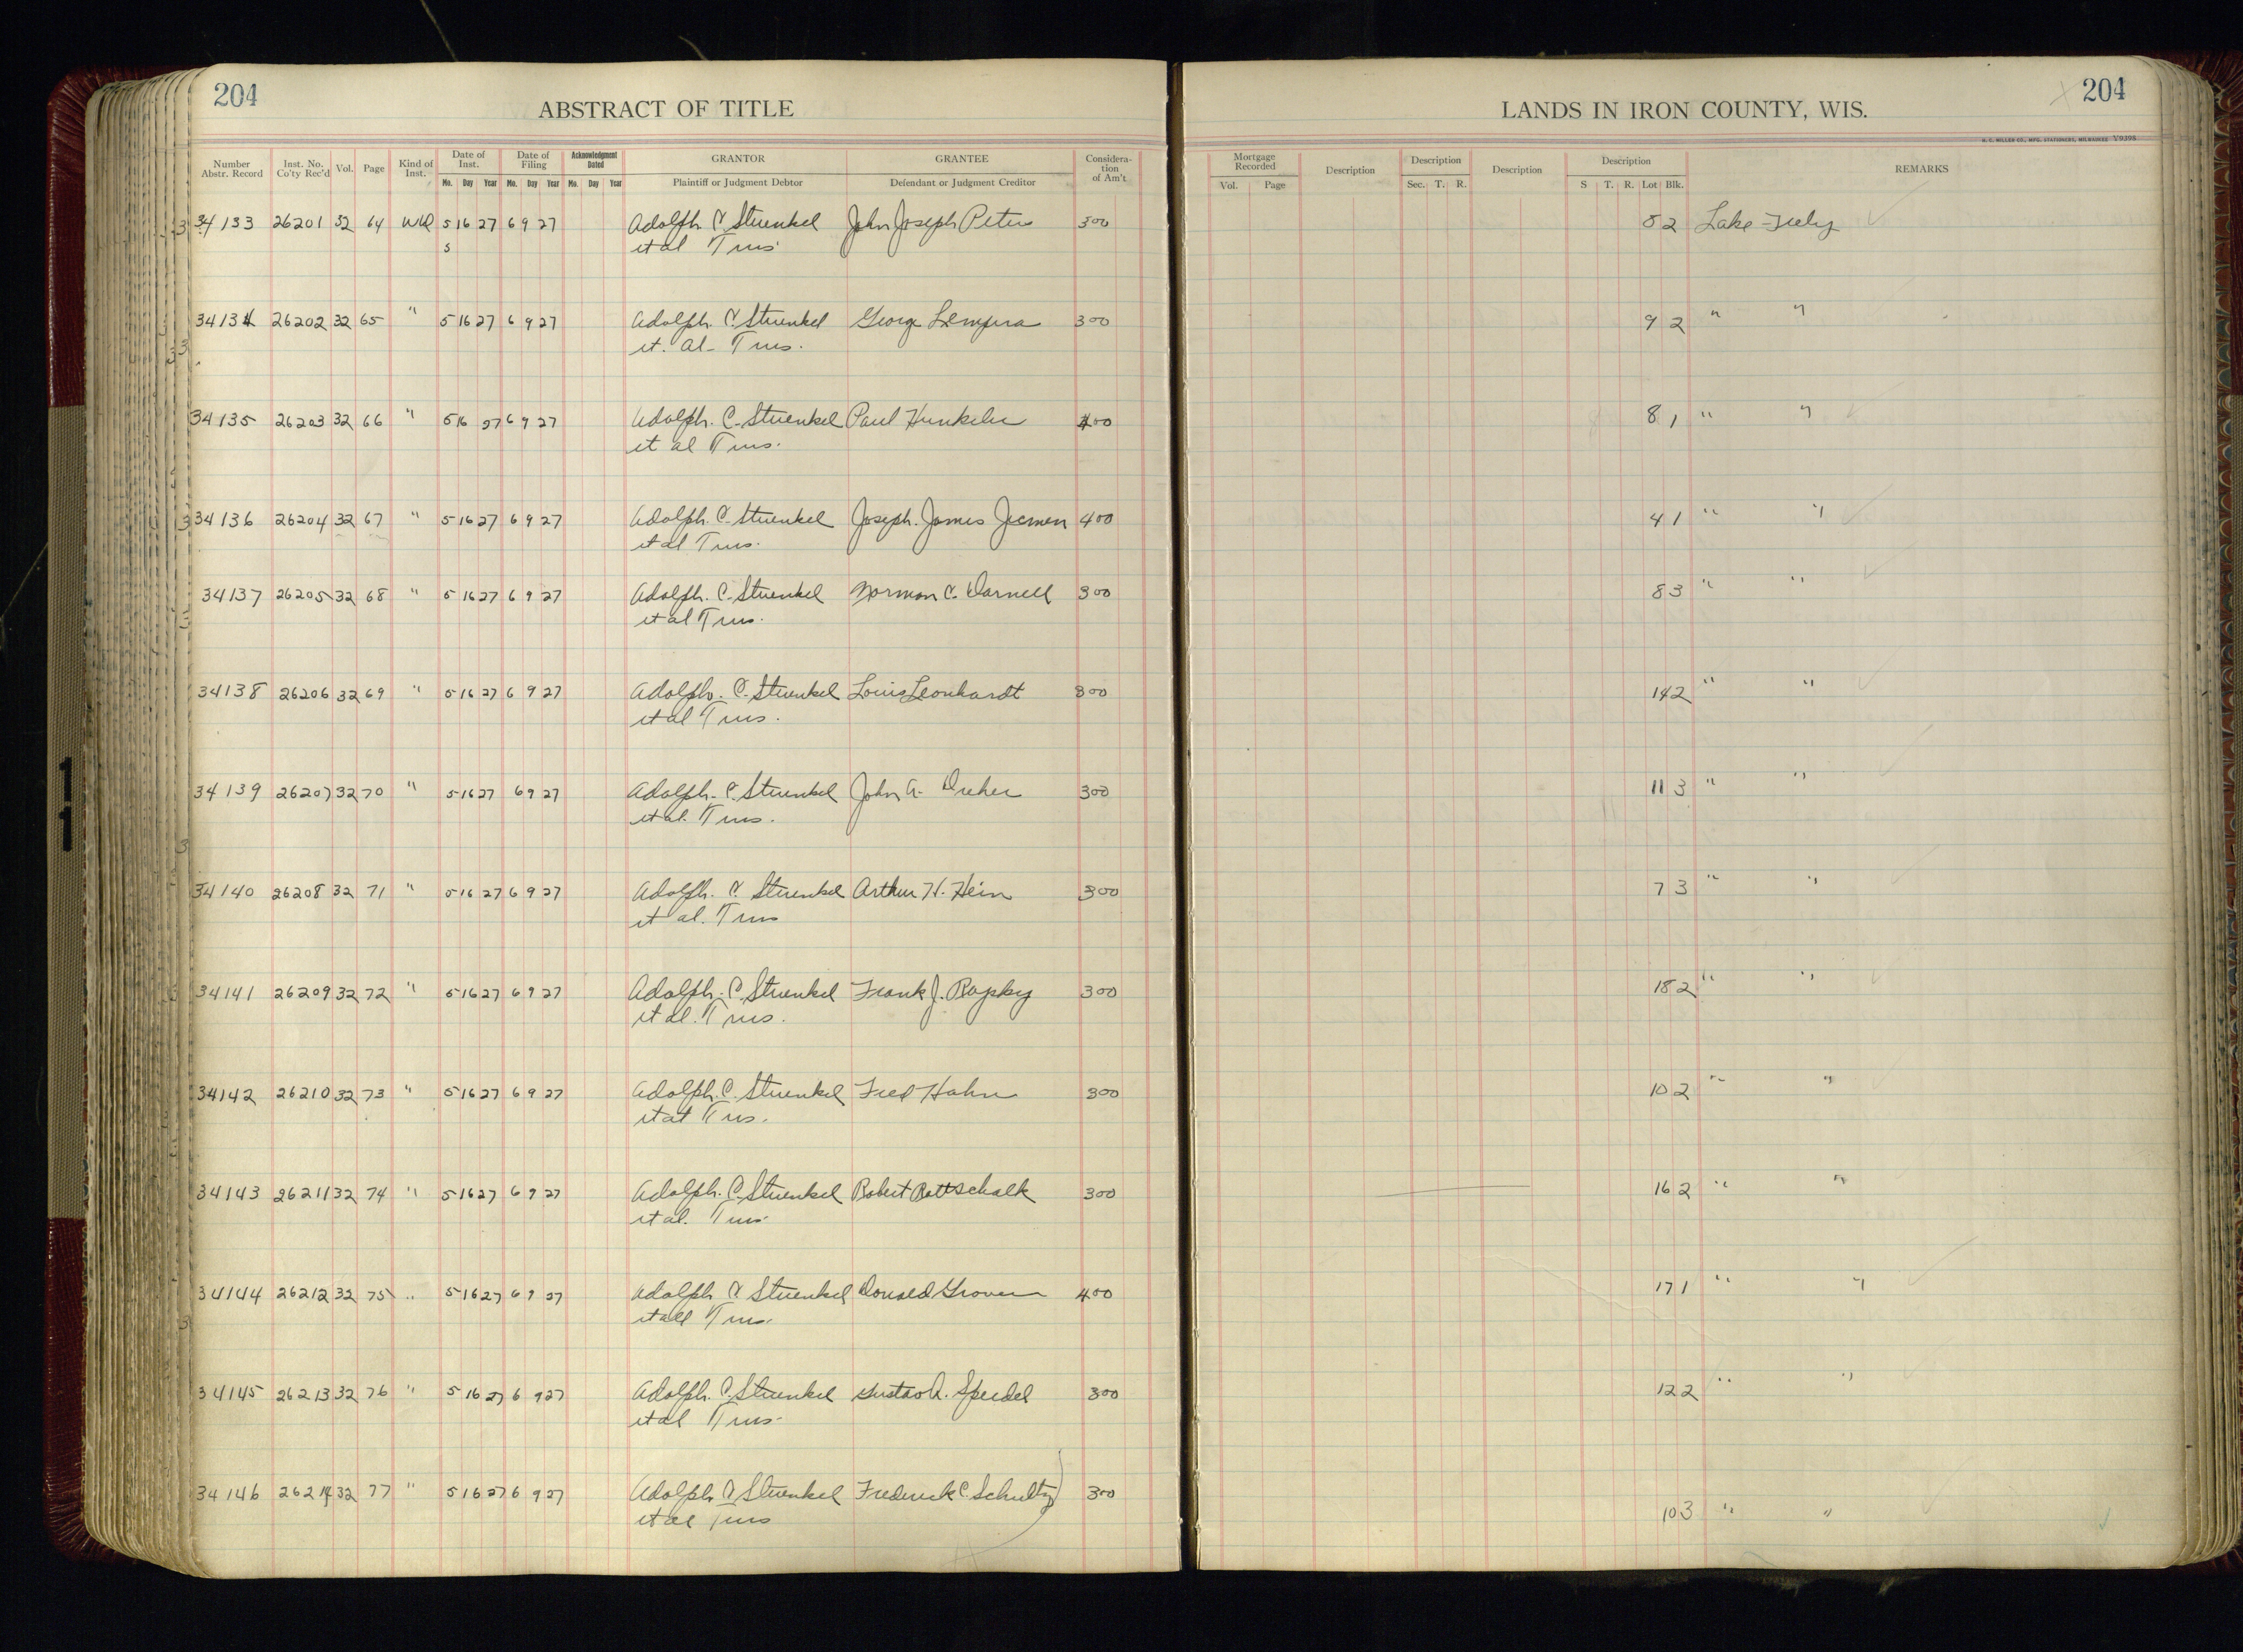 204
ABSTRACT OF TITLE
LANDS IN IRON COUNTY, WIS.
204
H. C. MILLER CO., MFG. STATIONERS, MILWAUKEE V9398
Number Abstr. Record Inst. No. Co'ty Rec'd Vol. Page Kind of Inst. Date of Inst. Date of Filing Acknowledgment Dated GRANTOR GRANTEE Considera-tion of Am't Mortgage Recorded Description Description Description Description REMARKS
Mo. Day Year Mo. Day Year Mo. Day Year Plaintiff or Judgment Debtor Defendant or Judgment Creditor Vol. Page Sec. T. R. S T. R. Lot Blk.
34133 26201 32 64 WD 5 16 27 6 9 27 Adolph C. Struenkel John Joseph Peter 300 8 2 Lake
5 et al Trus
34134 26202 32 65 " 5 16 27 6 9 27 Adolph. C. Struenkel George 300 9 2 " "
et. al- Trus.
34135 26203 32 66 " 5 16 27 6 9 27 Adolph. C. Struenkel Paul Hunkeler 400 8 1 " "
et al Trus.
34136 26204 32 67 " 5 16 27 6 9 27 Adolph. C. Struenkel Joseph. James Jecmen 400 4 1 " "
et al Trus.
34137 26205 32 68 " 5 16 27 6 9 27 Adolph. C. Struenkel Norman C. Darnell 300 8 3 " "
et al Trus.
34138 26206 32 69 " 5 16 27 6 9 27 Adolph. C. Struenkel Louis Leonhardt 300 14 2 " "
et al Trus.
34139 26207 32 70 " 5 16 27 6 9 27 Adolph. C. Struenkel John A. Dreher 300 11 3 " "
et al. Trus.
34140 26208 32 71 " 5 16 27 6 9 27 Adolph. C. Struenkel Arthur H. Hein 300 7 3 " "
et al. Trus
34141 26209 32 72 " 5 16 27 6 9 27 Adolph. C. Struenkel Frank J. 300 18 2 " "
et al. Trus.
34142 26210 32 73 " 5 16 27 6 9 27 Adolph. C. Struenkel Fred Hahn 300 10 2 " "
et al Trus.
34143 26211 32 74 " 5 16 27 6 9 27 Adolph. C. Struenkel Robert Rottschalk 300 16 2 " "
et al. Trus.
34144 26212 32 75 " 5 16 27 6 9 27 Adolph C. Struenkel Donald Grover 400 17 1 " "
et all Trus.
34145 26213 32 76 " 5 16 27 6 9 27 Adolph. C. Struenkel Gustav A. Speidel 300 12 2 " "
et al Trus.
34146 26214 32 77 " 5 16 27 6 9 27 Adolph C. Struenkel Frederick C. Schultz 300 10 3 " "
et al Trus